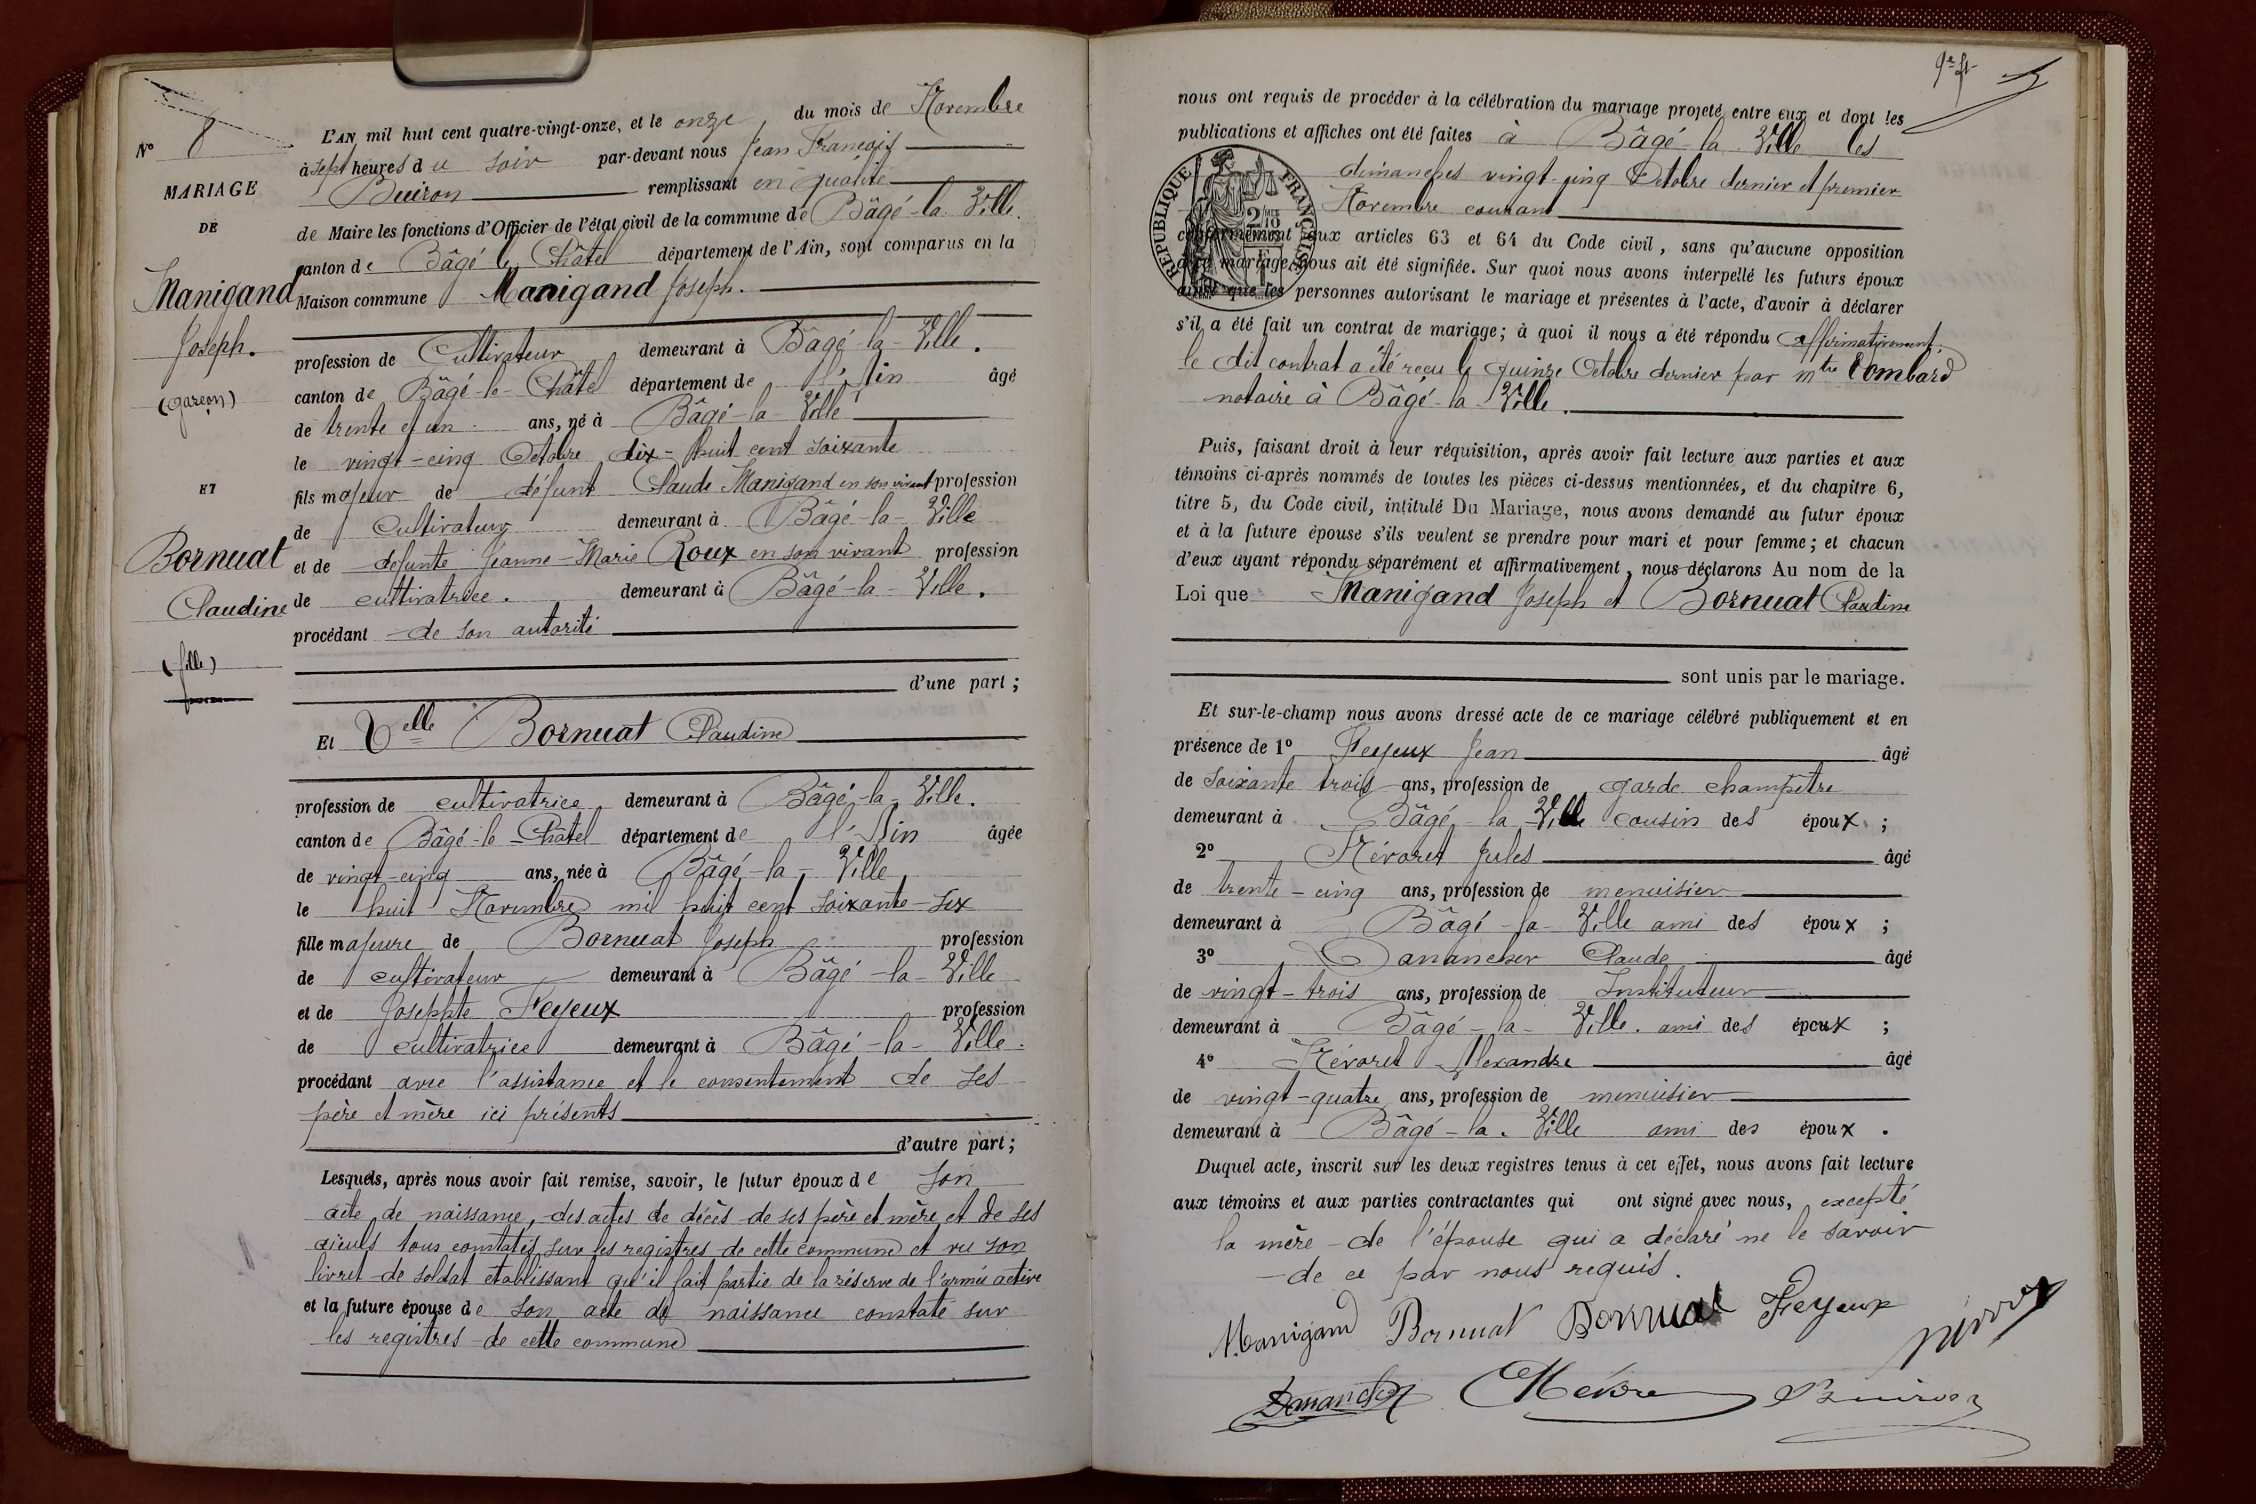 N° 8
MARIAGE
DE
Manigand
Joseph.
(garçon)
ET
Bornuat
Claudine
(fille)
L'AN mil huit cent quatre-vingt-onze, et le onze du mois de Novembre
à sept heures du soir par-devant nous Jean François
Buiron remplissant en qualité
de Maire les fonctions d'Officier de l'état civil de la commune de Bâgé-la-Ville.
canton de Bâgé le Châtel département de l'Ain, sont comparus en la
Maison commune Manigand Joseph.
profession de Cultivateur demeurant à Bâgé-la-Ville.
canton de Bâgé-le-Châtel département de l'Ain âgé
de trente et un ans, né à Bâgé-la-Ville
le vingt-cinq Octobre dix-huit cent soixante
fils majeur de défunt Claude Manigand en son vivant profession
de Cultivateur demeurant à Bâgé-la-Ville
et de défunte Jeanne-Marie Roux en son vivant profession
de cultivatrice. demeurant à Bâgé-la-Ville.
procédant de son autorité
d'une part;
Et Delle Bornuat Claudine
profession de cultivatrice demeurant à Bâgé-la-Ville.
canton de Bâgé-le-Châtel département de l'Ain âgée
de vingt-cinq ans, née à Bâgé-la-Ville
le huit Novembre mil huit cent soixante-six
fille majeure de Bornuat Joseph profession
de cultivateur demeurant à Bâgé-la-Ville
et de Josephte Feyeux profession
de cultivatrice demeurant à Bâgé-la-Ville.
procédant avec l'assistance et le consentement de ses
père et mère ici présents
d'autre part;
Lesquels, après nous avoir fait remise, savoir, le futur époux de son
acte de naissance, des actes de décès de ses père et mère et de ses
aïeuls tous constatés sur les registres de cette commune et vu son
livret de soldat établissant qu'il fait partie de la réserve de l'armée active
et la future épouse de son acte de naissance constaté sur
les registres de cette commune
nous ont requis de procéder à la célébration du mariage projeté entre eux et dont les
publications et affiches ont été faites à Bâgé-la-Ville les
dimanches vingt-cinq Octobre dernier et premier
Novembre courant
RÉPUBLIQUE FRANÇAISE
conformément aux articles 63 et 64 du Code civil, sans qu'aucune opposition
à ce mariage nous ait été signifiée. Sur quoi nous avons interpellé les futurs époux
ainsi que les personnes autorisant le mariage et présentes à l'acte, d'avoir à déclarer
s'il a été fait un contrat de mariage; à quoi il nous a été répondu affirmativement.
le dit contrat a été reçu le quinze Octobre dernier par mtre Lombard
notaire à Bâgé-la-Ville.
Puis, faisant droit à leur réquisition, après avoir fait lecture aux parties et aux
témoins ci-après nommés de toutes les pièces ci-dessus mentionnées, et du chapitre 6,
titre 5, du Code civil, intitulé Du Mariage, nous avons demandé au futur époux
et à la future épouse s'ils veulent se prendre pour mari et pour femme; et chacun
d'eux ayant répondu séparément et affirmativement, nous déclarons Au nom de la
Loi que Manigand Joseph et Bornuat Claudine
sont unis par le mariage.
Et sur-le-champ nous avons dressé acte de ce mariage célébré publiquement et en
présence de 1° Feyeux Jean âgé
de soixante trois ans, profession de garde champêtre
demeurant à Bâgé-la-Ville cousin des époux;
2° Névoret Jules âgé
de trente-cinq ans, profession de menuisier
demeurant à Bâgé-la-Ville ami des époux;
3° Danancher Claude âgé
de vingt-trois ans, profession de Instituteur
demeurant à Bâgé-la-Ville. ami des époux;
4° Névoret Alexandre âgé
de vingt-quatre ans, profession de menuisier
demeurant à Bâgé-la-Ville ami des époux.
Duquel acte, inscrit sur les deux registres tenus à cet effet, nous avons fait lecture
aux témoins et aux parties contractantes qui ont signé avec nous, excepté
la mère de l'épouse qui a déclaré ne le savoir
de ce par nous requis.
Manigand Bornuat Bornuat Feyeux
Danancher Buiron